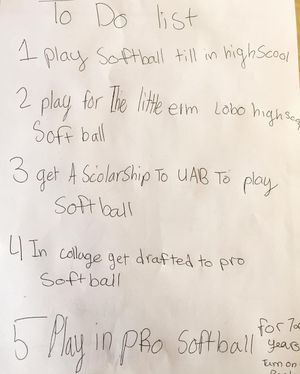 To Do list
1 play Softball till in highScool
2 play for The little elm Lobo high
Soft ball
3 get A Scolarship To UAB To play
Softball
4 In collage get drafted to pro
Softball
5 Play in pRo Softball for
years
turn on